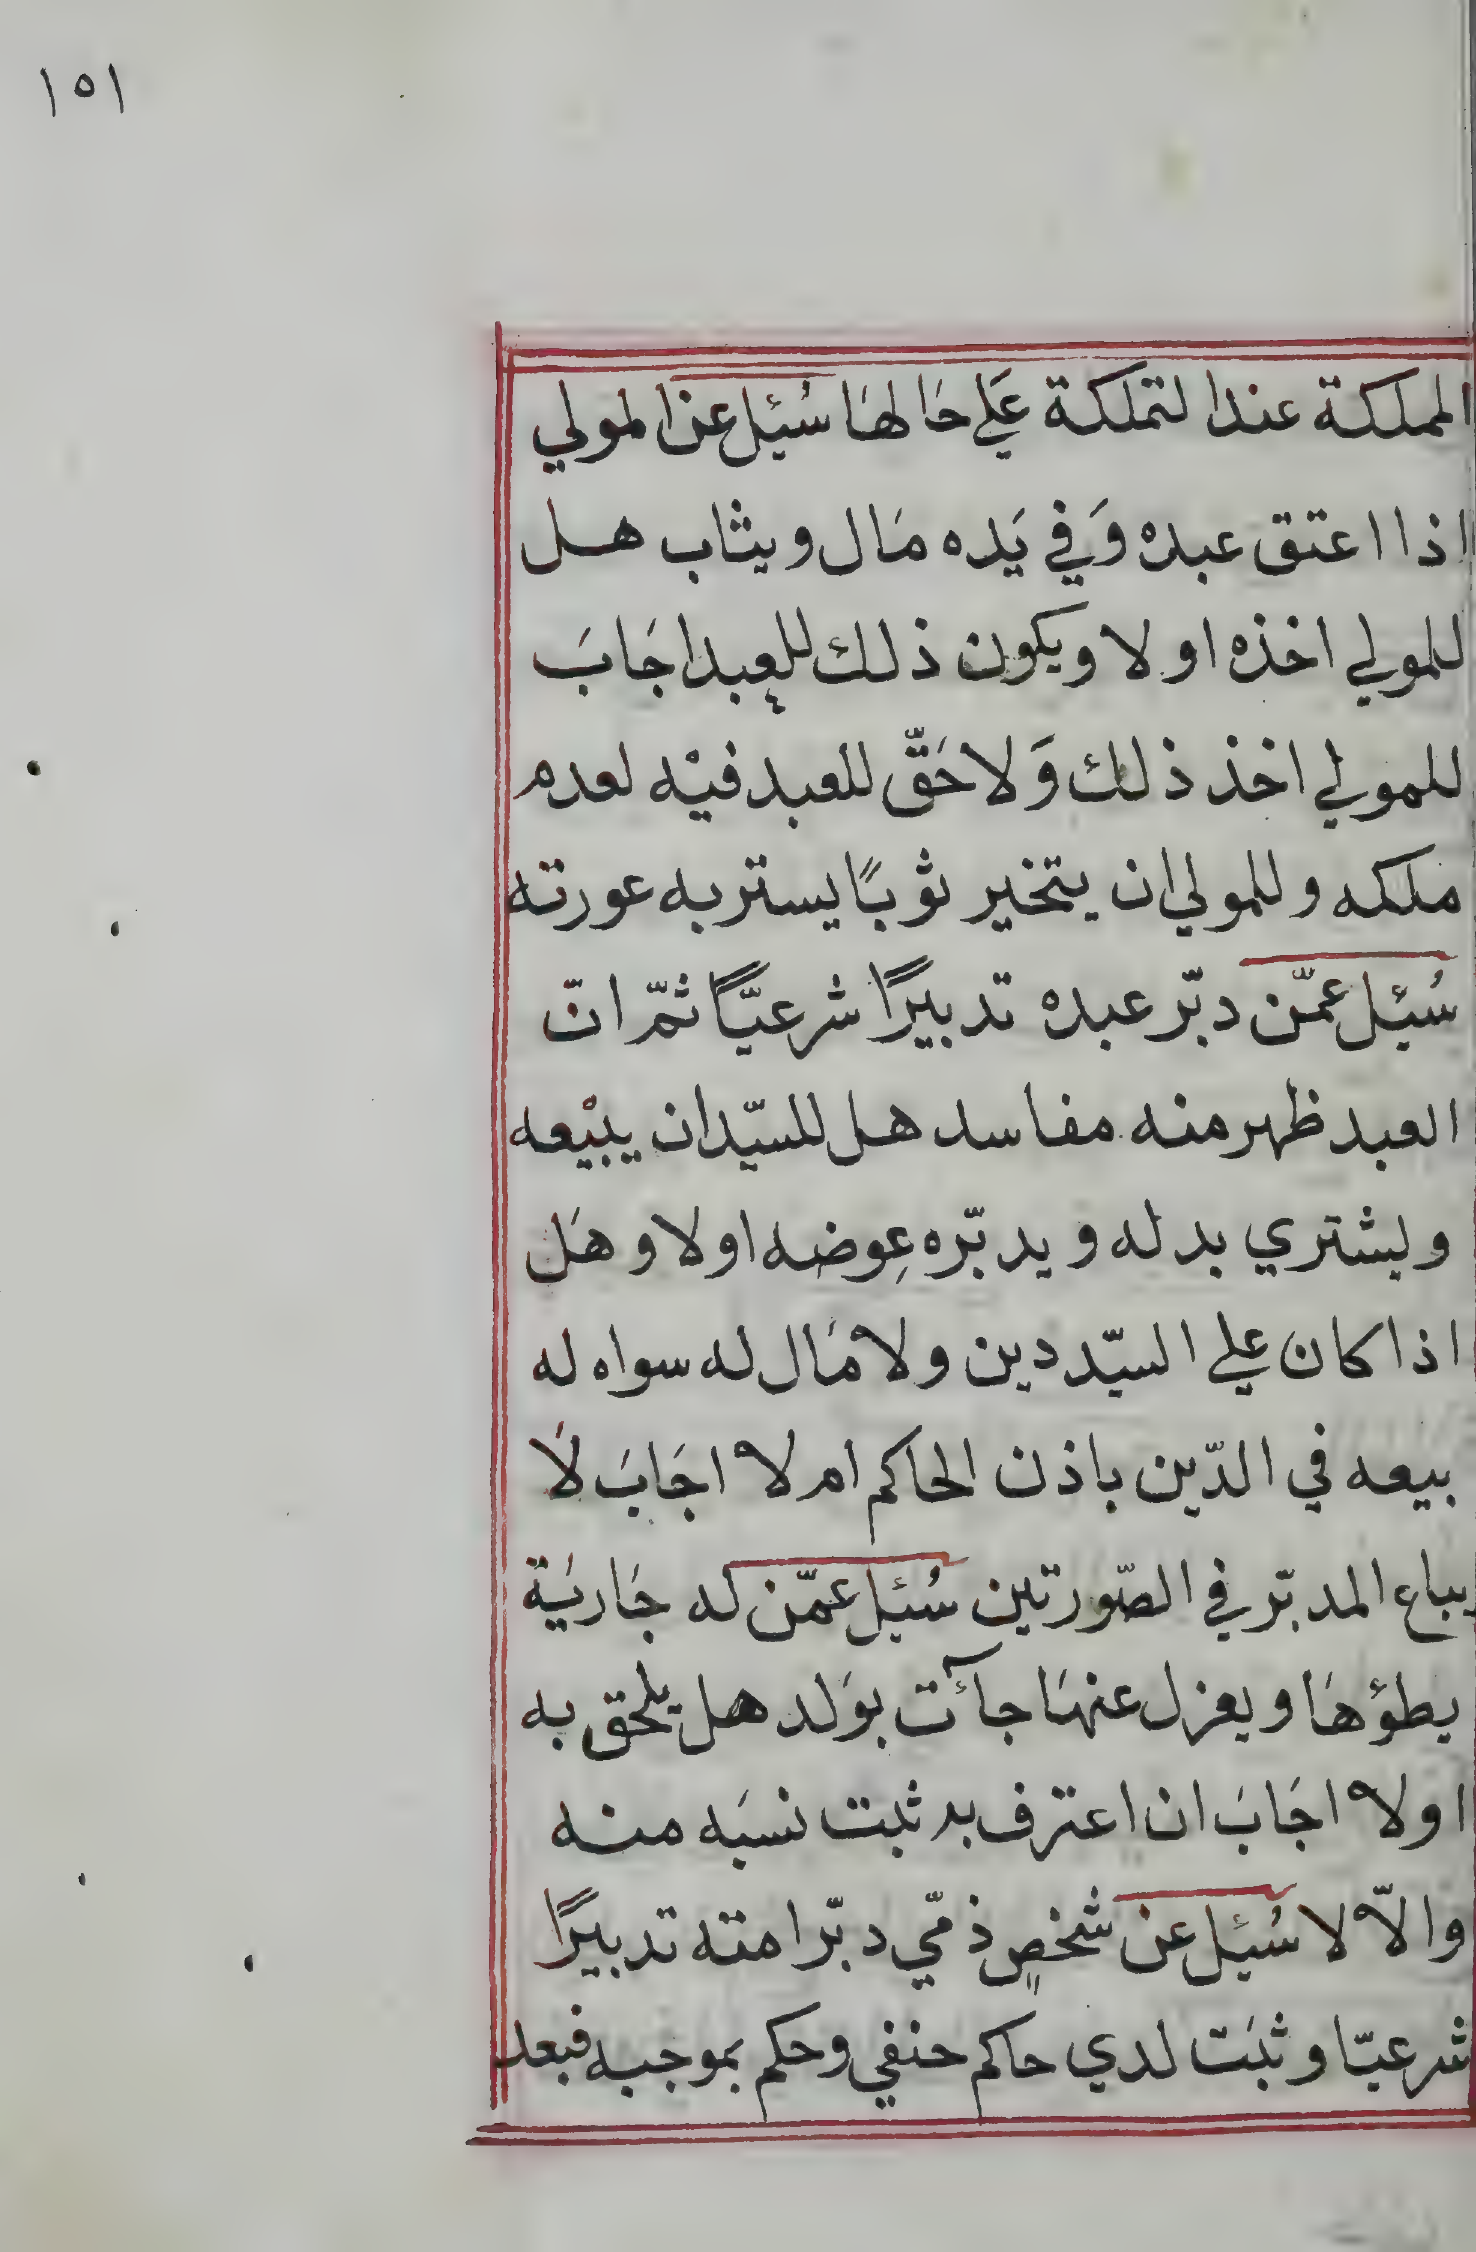 ١٥١
المملكة عند التملكة عَلي حَالهَا سُئِل عن المولي
اذا اعتق عبده وَفي يَده مَال وثياب هل
للمولي اخذه او لا ويكون ذلك للعبد اجَابَ
للمولي اخذ ذلك وَلا حَقّ للعبد فيْه لعدم
ملكه وللمولي ان يتخير ثوبًا يستر به عورته
سُئِل عمّن دبّر عبده تدبيرًا شرعيًّا ثمّ انّ
العبد ظهر منه مفاسد هل للسيّد ان يبيْعه
ويشتري بدله ويدبّره عِوضه او لا وهَل
اذا كان علي السيّد دين ولا مَال له سواه له
بيعه في الدّين باذن الحاكم ام لا اجَابَ لَا
يباع المدبّر في الصّورتين سُئِل عمّن له جَاريَة
يطؤهَا ويعزل عنهَا جآءت بوَلد هل يلحق به
او لا اجَابَ ان اعترف به ثبت نسبَه منه
والّا لا سُئِل عن شخصٍ ذمّي دبّر امته تدبيرًا
شرعيّا وثبَت لدي حاكم حنفي وحكم بموجبه فبعد